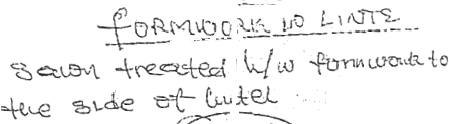 FORMWORK TO LINTE
sawn treated h/w formwork to
the side of lintel